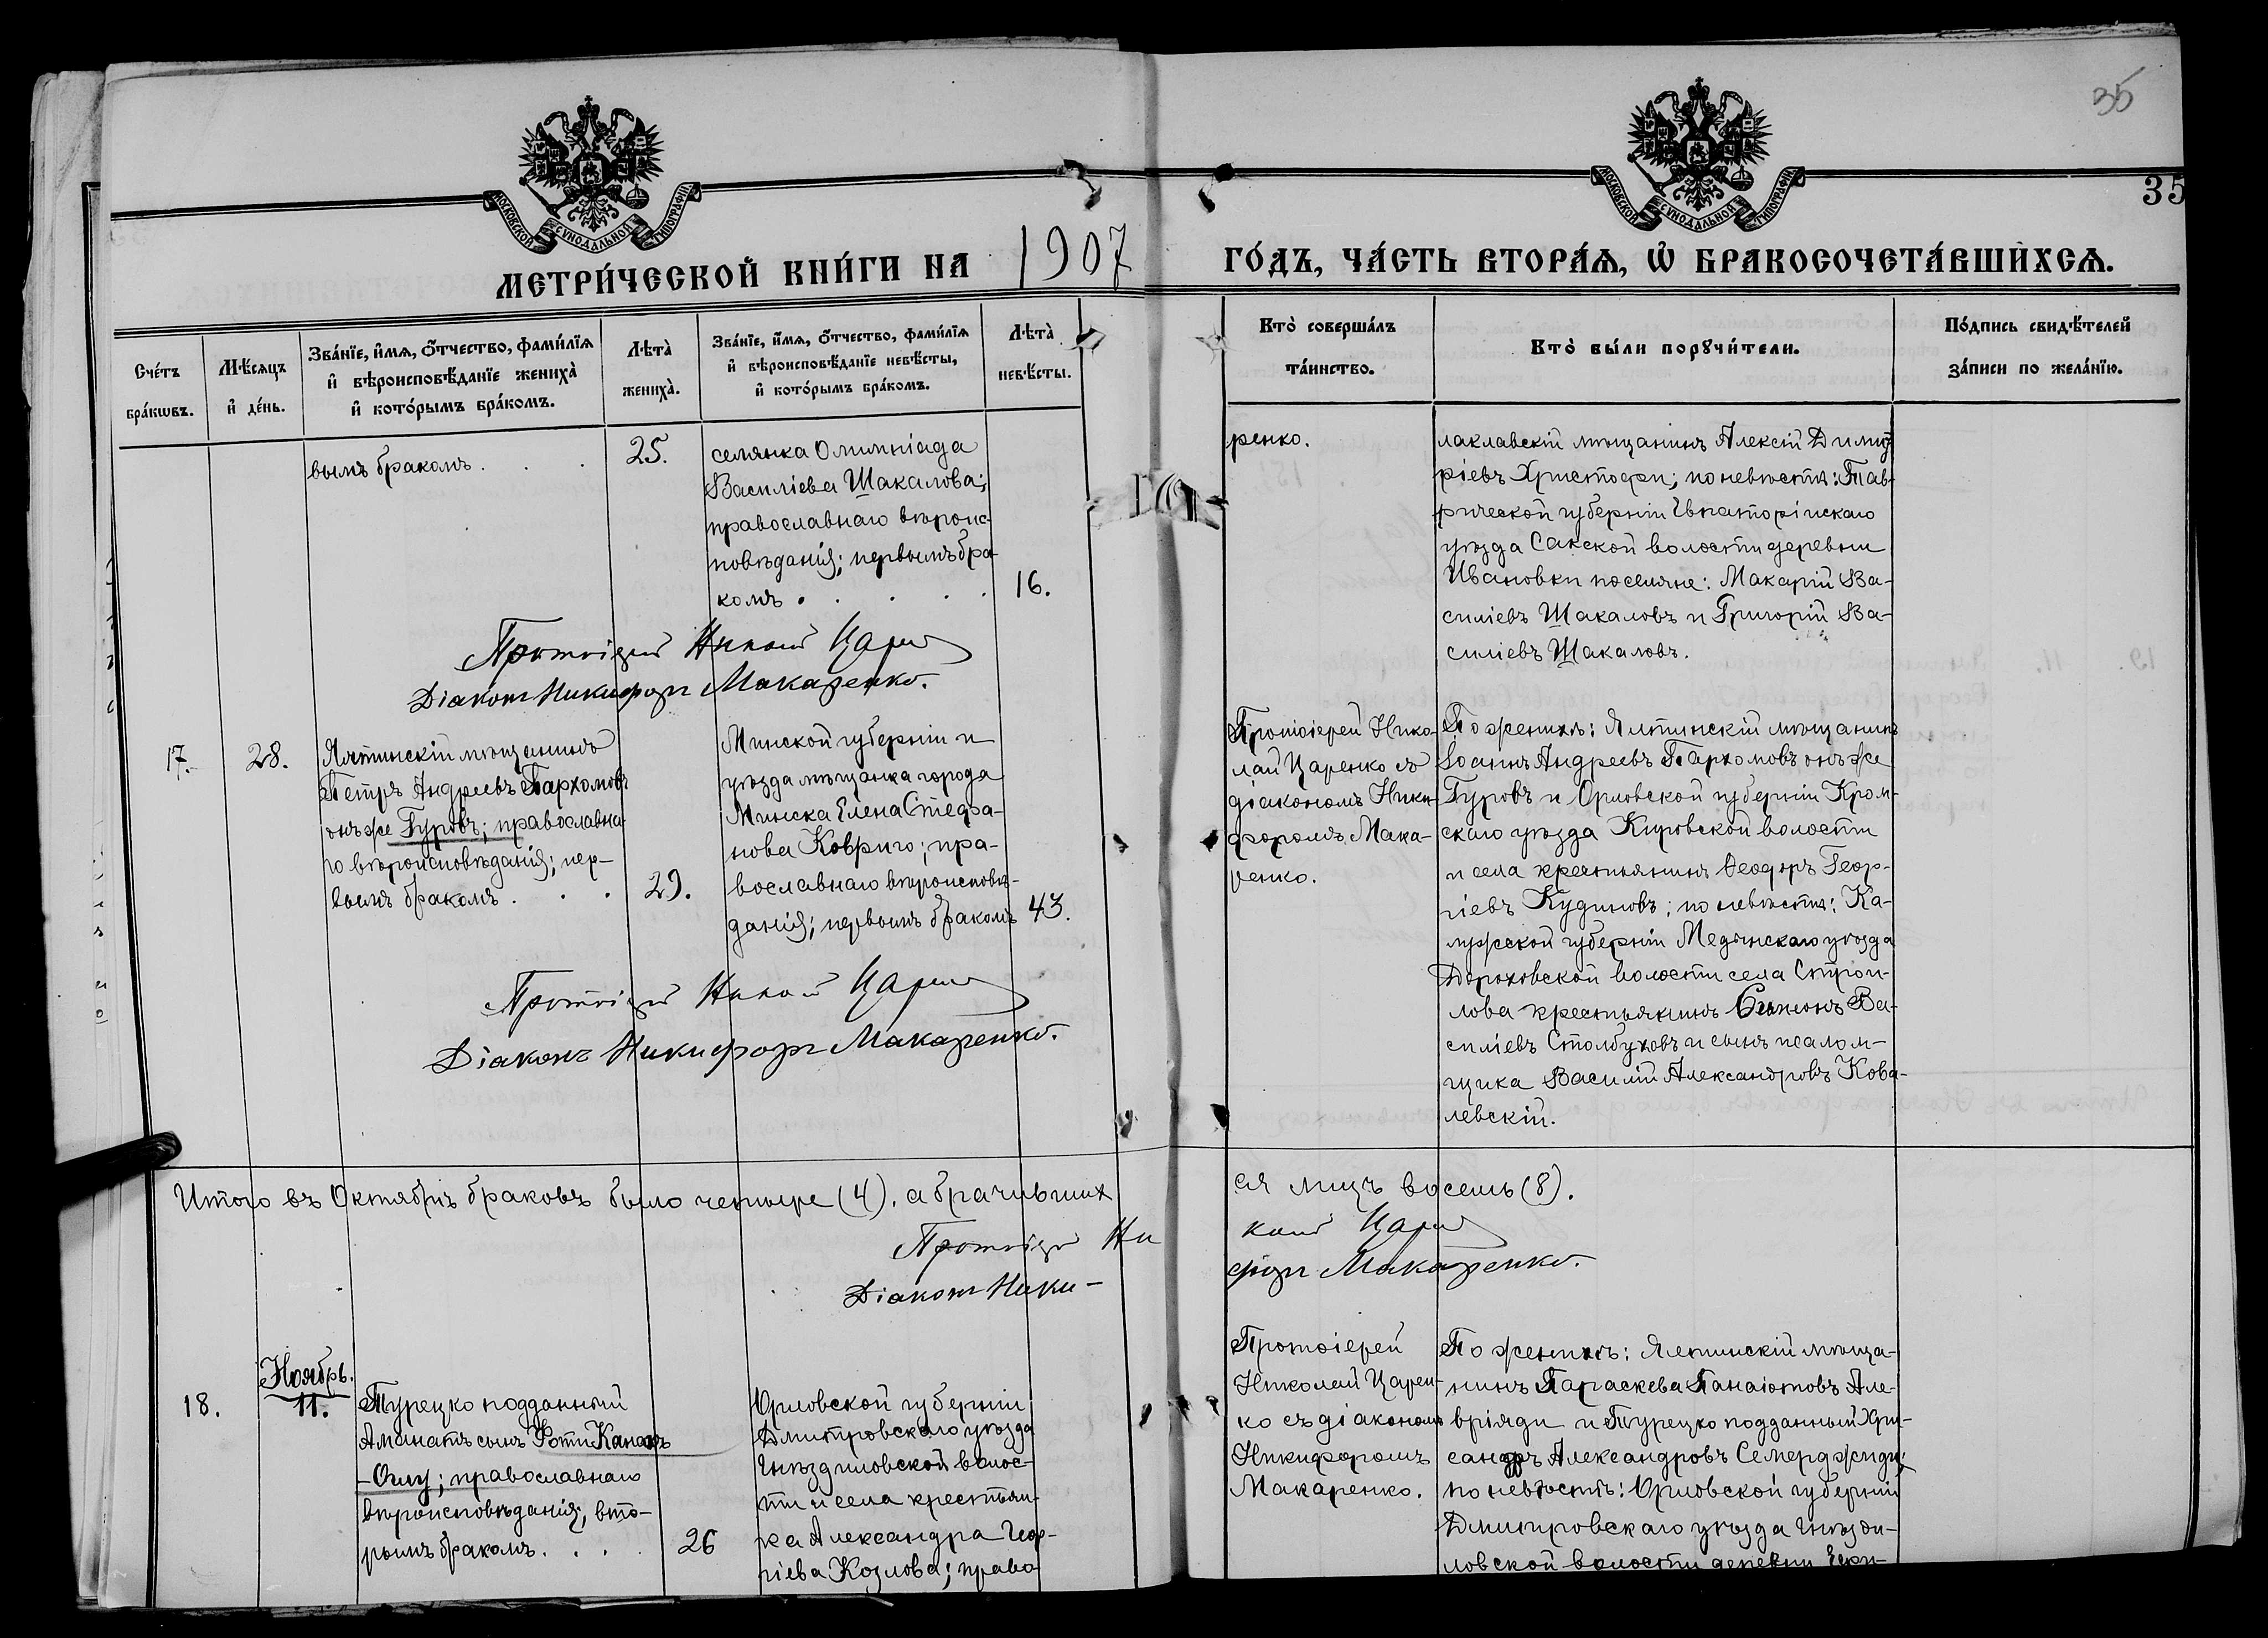 35
35
МОСКОВСКОЙ СѴНОДАЛЬНОЙ ТИПОГРАФІИ
МОСКОВСКОЙ СѴНОДАЛЬНОЙ ТИПОГРАФІИ
МЕТРИ́ЧЕСКОЙ КНИ́ГИ НА 1907
ГО́ДЪ, ЧА́СТЬ ВТОРА́Я, Ѡ҆ БРАКОСОЧЕТА́ВШИХСЯ.
Сче́тъ
бра́кѡвъ.
Мѣ́сяцъ
и҆ де́нь.
Зва́нїе, и҆́мя, ѻ҆́тчество, фами́лїя
и҆ вѣроисповѣ́данїе жениха̀
и҆ кото́рымъ бра́комъ.
Лѣта̀
жениха̀.
Зва́нїе, и҆́мя, ѻ҆́тчество, фами́лїя
и҆ вѣроисповѣ́данїе невѣ́сты,
и҆ кото́рымъ бра́комъ.
Лѣта̀
невѣ́сты.
Кто̀ соверша́лъ
та́инство.
Кто̀ бы́ли порꙋчи́тели.
По́дпись свидѣ́телей
за́писи по жела́нїю.
вымъ бракомъ . . .
25.
селянка Олимпіада
Василіева Шакалова;
православнаго вѣроис-
повѣданія; первымъ бра-
комъ . . . . .
16.
ренко.
лаклавскій мѣщанинъ Алексій Димит
ріевъ Христофи; по невѣстѣ: Тав-
рической губерніи Евпаторійскаго
уѣзда Сакской волости деревни
Ивановки поселяне: Макарій Ва-
силіевъ Шакаловъ и Григорій Ва-
силіевъ Шакаловъ.
Протоіерей Николай Царенко
Діаконъ Никифоръ Макаренко.
17.
28.
Ялтинскій мѣщанинъ
Петръ Андреевъ Пархомовъ
онъ же Гуровъ; православна-
го вѣроисповѣданія; пер-
вымъ бракомъ . . .
29.
Минской губерніи и
уѣзда мѣщанка города
Минска Елена Стефа-
нова Ковриго; пра-
вославнаго вѣроисповѣ-
данія; первымъ бракомъ
43.
Протоіерей Нико-
лай Царенко съ
діакономъ Ники-
форомъ Мака-
ренко.
По женихѣ: Ялтинскій мѣщанинъ
Іоаннъ Андреевъ Пархомовъ онъ же
Гуровъ и Орловской губерніи Кром-
скаго уѣзда Кировской волости
и села крестьянинъ Ѳеодоръ Геор-
гіевъ Кудиновъ; по невѣстѣ: Ка-
лужской губерніи Медынскаго уѣзда
Дороховской волости села Строи-
лова крестьянинъ Симонъ Ва-
силіевъ Столбуховъ и сынъ псалом-
щика Василій Александровъ Кова-
левскій.
Протоіерей Николай Царенко
Діаконъ Никифоръ Макаренко.
Итого въ Октябрѣ браковъ было четыре (4). а брачившихся лицъ восемь (8).
Протоіерей Николай Царенко
Діаконъ Ники-форъ Макаренко.
18.
Ноябрь.
11.
Турецко подданный
Аманатъ сынъ Фоти Канакъ
-Оглу; православнаго
вѣроисповѣданія; вто-
рымъ бракомъ. . . .
26
Орловской губерніи
Дмитровскаго уѣзда
Гнѣздиловской волос-
ти и села крестьян-
ка Александра Геор-
гіева Козлова; право
Протоіерей
Николай Царен-
ко съ діакономъ
Никифоромъ
Макаренко.
По женихѣ: Ялтинскій мѣща-
нинъ Параскева Панаіотовъ Але-
вріяди и Турецко подданный Хри-
санфъ Александровъ Семерджиди;
по невѣстѣ: Орловской губерніи
Дмитровскаго уѣзда Гнѣзди-
ловской волости деревни